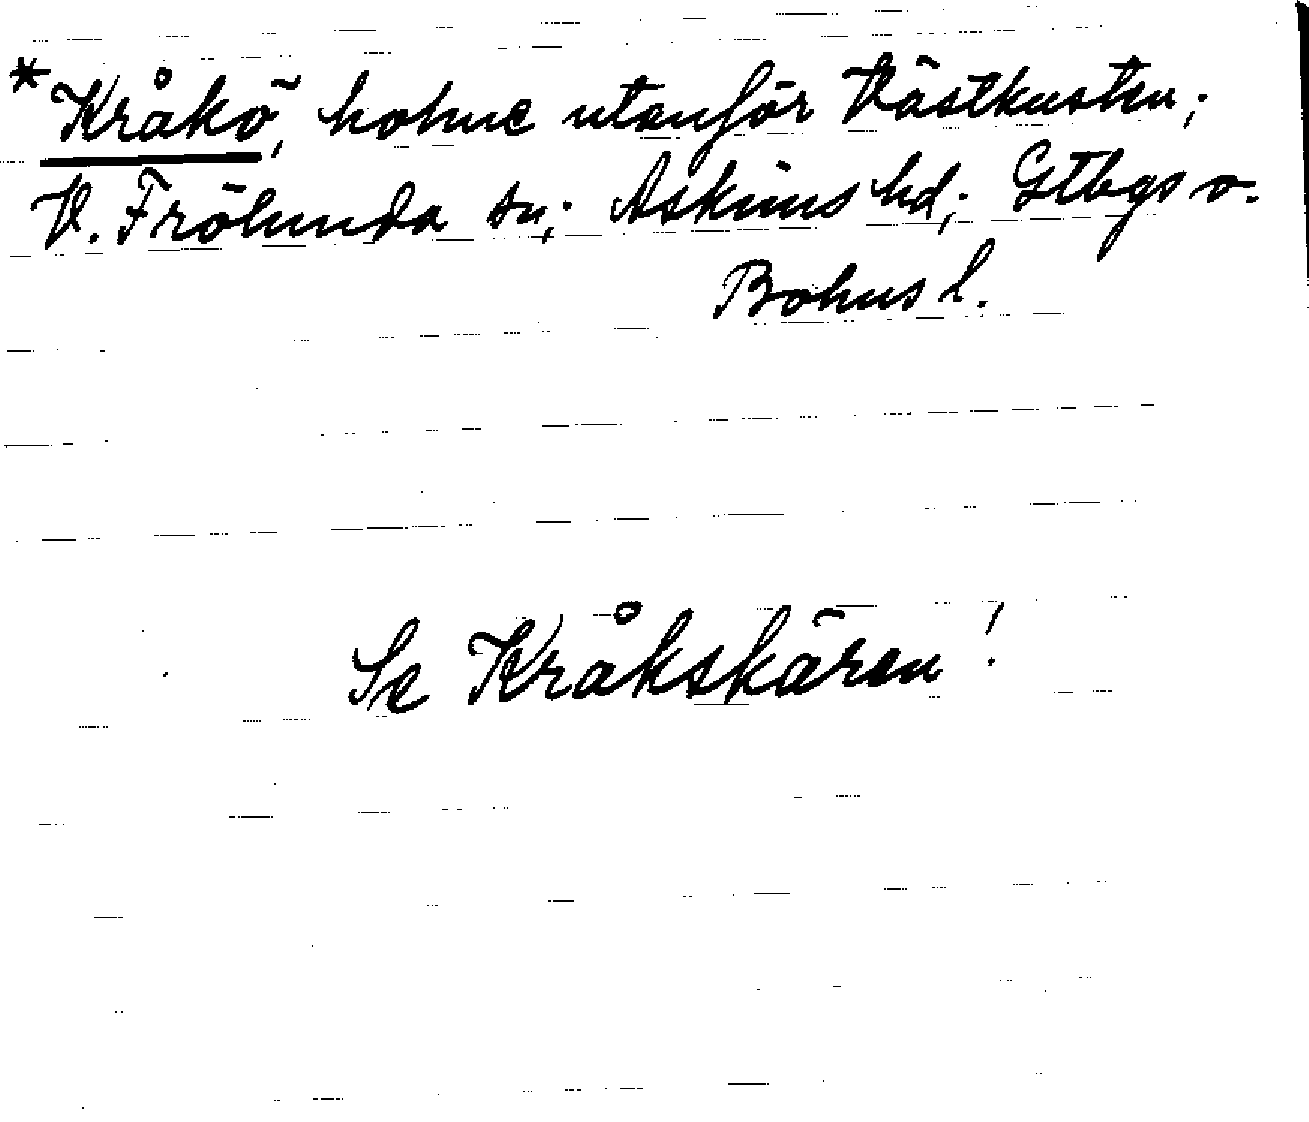 *Kråkö, holme utanför Västkusten;
V. Frölunda sn; Askims hd; Gtbgs o.
Bohus l.
Se Kråkskären!